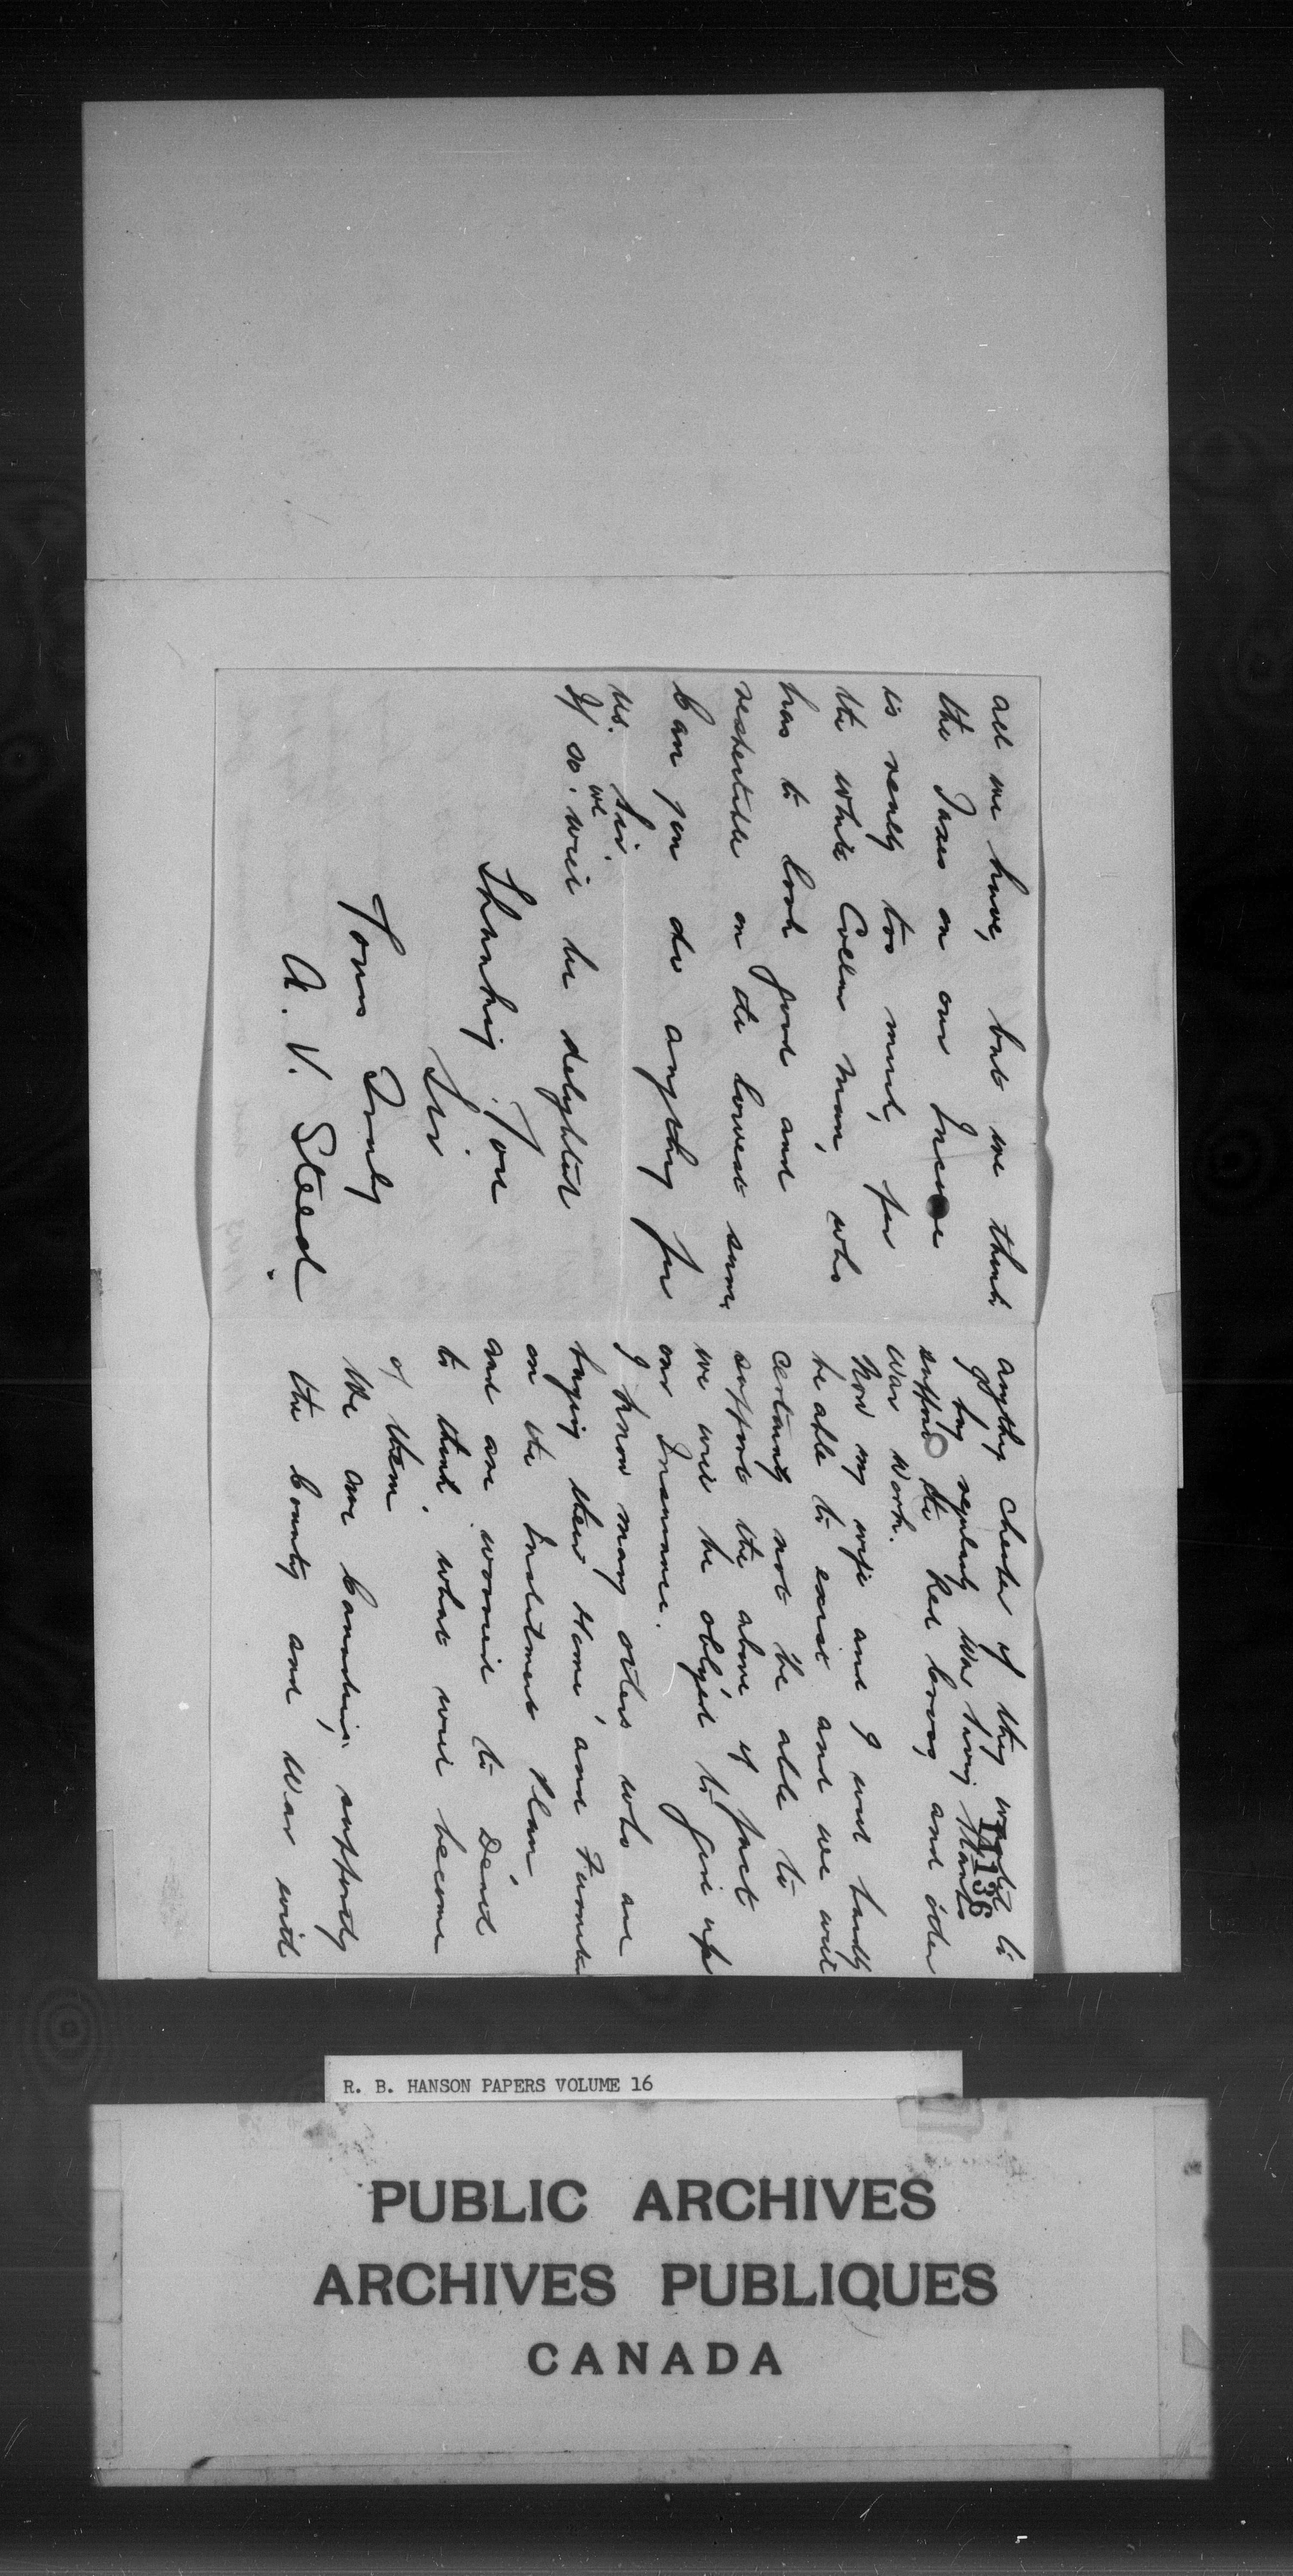 11136
cheaper if they wanted to
buy regularly War Saving Stamps
support the Red Cross, and other
War Work.
Now my wife and I will hardly
be able to exist and we will
certainly not be able to
support the above if fact
we will be obliged to give up
our Insurance.
I know many others who are
buying their Home, and Furniture
on the Instalment Plan
and are worried to Death
to think, what will become
of them
We are Canadians, supporting
the Country and War with
all we have, but we think
the Taxes on our Income
is really too much, for
the white Collar man, who
has to look good and
respectable on the lowest sums
Can you do anything for
us. Sir.
If so. we will be delighted
Thanking You
Sir
Yours Truly
A. V. Steed.
R. B. HANSON PAPERS VOLUME 16
PUBLIC ARCHIVES
ARCHIVES PUBLIQUES
CANADA